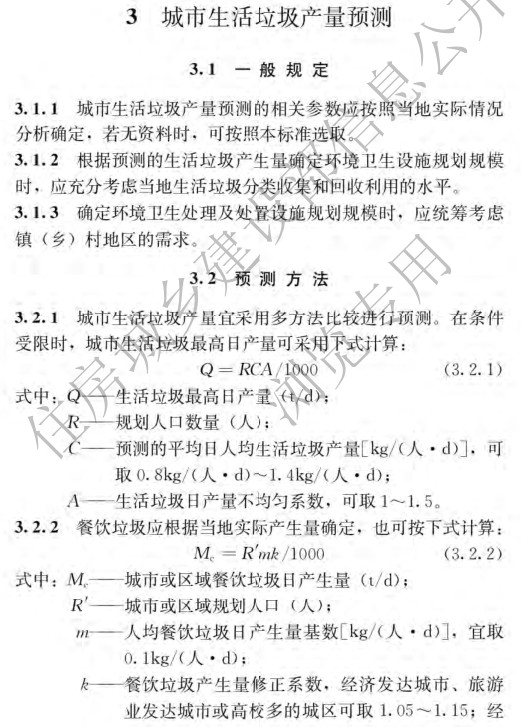 3 城市生活垃圾产量预测
3.1 一般规定
3.1.1 城市生活垃圾产量预测的相关参数应按照当地实际情况
分析确定，若无资料时，可按照本标准选取。
3.1.2 根据预测的生活垃圾产生量确定环境卫生设施规划规模
时，应充分考虑当地生活垃圾分类收集和回收利用的水平。
3.1.3 确定环境卫生处理及处置设施规划规模时，应统筹考虑
镇（乡）村地区的需求。
3.2 预测方法
3.2.1 城市生活垃圾产量宜采用多方法比较进行预测。在条件
受限时，城市生活垃圾最高日产量可采用下式计算：
Q = RCA/1000 (3.2.1)
式中：Q——生活垃圾最高日产量（t/d）；
R——规划人口数量（人）；
C——预测的平均日人均生活垃圾产量[kg/（人·d）]，可
取 0.8kg/（人·d）～1.4kg/（人·d）；
A——生活垃圾日产量不均匀系数，可取 1～1.5。
3.2.2 餐饮垃圾应根据当地实际产生量确定，也可按下式计算：
Mc = R′mk/1000 (3.2.2)
式中：Mc——城市或区域餐饮垃圾日产生量（t/d）；
R′——城市或区域规划人口（人）；
m——人均餐饮垃圾日产生量基数[kg/（人·d）]，宜取
0.1kg/（人·d）；
k——餐饮垃圾产生量修正系数，经济发达城市、旅游
业发达城市或高校多的城区可取 1.05～1.15；经
住房城乡建设部信息公开
浏览专用